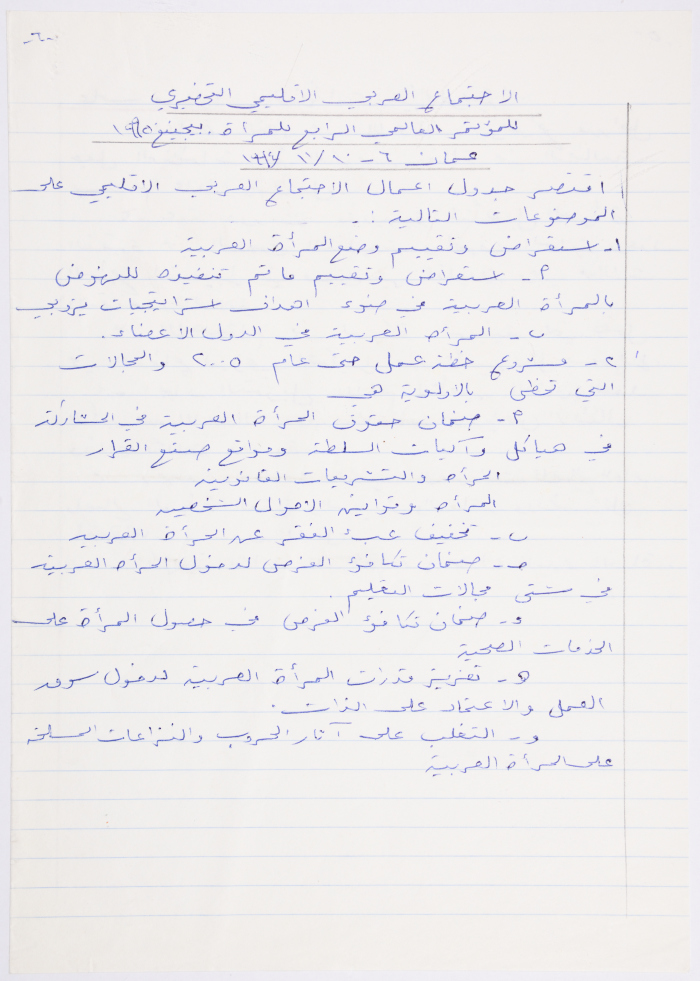 -٦-
الاجتماع العربي الاقليمي التحضيري
للمؤتمر العالمي الرابع للمرأة . بيجينغ ١٩٩٥
عمان ٦ - ١٠ / ١١ / ١٩٩٤
اقتصر جدول اعمال الاجتماع العربي الاقليمي على
الموضوعات التالية : -
١- استعراض وتقييم وضع المرأة العربية
أ - استعراض وتقييم ما تم تنفيذه للنهوض
بالمرأة العربية في ضوء اهداف استراتيجيات نيروبي
ب - المرأه العربية في الدول الاعضاء .
٢ - مشروع خطة عمل حتى عام ٢٠٠٥ والمجالات
التي تحظى بالاولوية هي
أ - ضمان حقوق المرأة العربية في المشاركة
في هياكل وآليات السلطة ومواقع صنع القرار
المرأه والتشريعات القانونية
المرأه وقوانين الاحوال الشخصيه
ب - تخفيف عبء الفقر عن المرأة العربيه
ج - ضمان تكافؤ الفرص لدخول المرأه العربية
في شتى مجالات التعليم .
د - ضمان تكافؤ الفرص في حصول المرأة على
الخدمات الصحية
ه - تعزيز قدرات المرأة العربية لدخول سوق
العمل والاعتماد على الذات .
و - التغلب على آثار الحروب والنزاعات المسلحه
على المرأة العربية